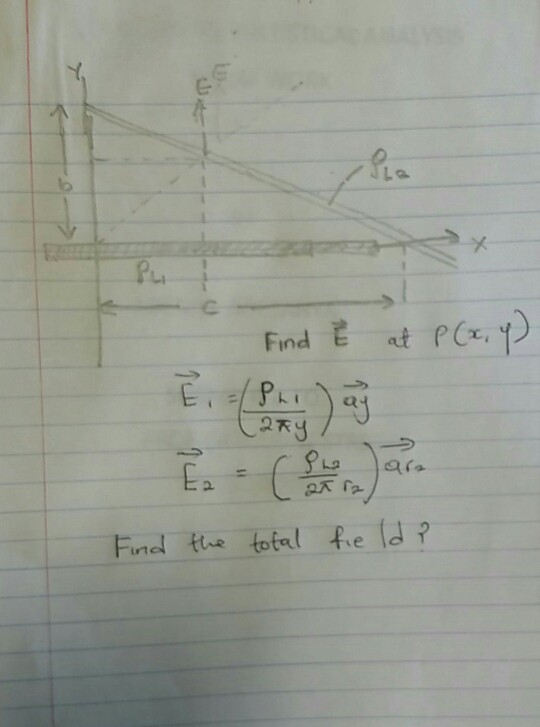 Y
E
E
b
ρL2
X
ρL1
c
Find E⃗ at P(x, y)
E⃗1 = (ρL1 / 2πy) a⃗y
E⃗2 = (ρL2 / 2π r2) a⃗r2
Find the total field?